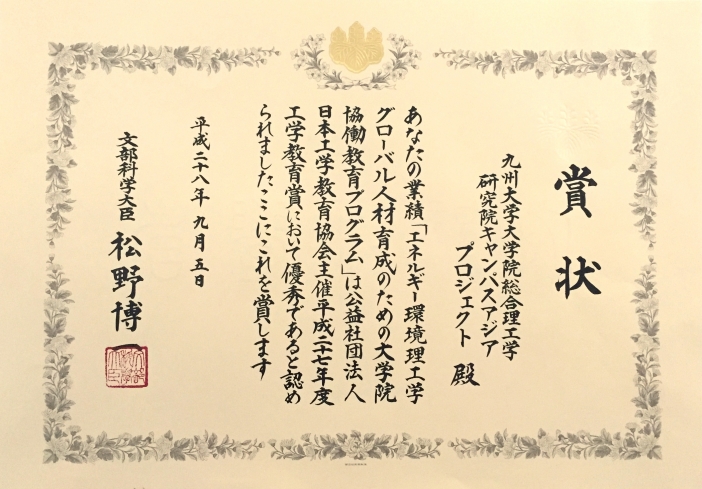 賞状
九州大学大学院総合理工学
研究院キャンパスアジア
プロジェクト 殿
あなたの業績「エネルギー環境理工学
グローバル人材育成のための大学院
協働教育プログラム」は公益社団法人
日本工学教育協会主催平成二十七年度
工学教育賞において優秀であると認め
られましたここにこれを賞します
平成二十八年 九月 五日
文部科学大臣 松野博一